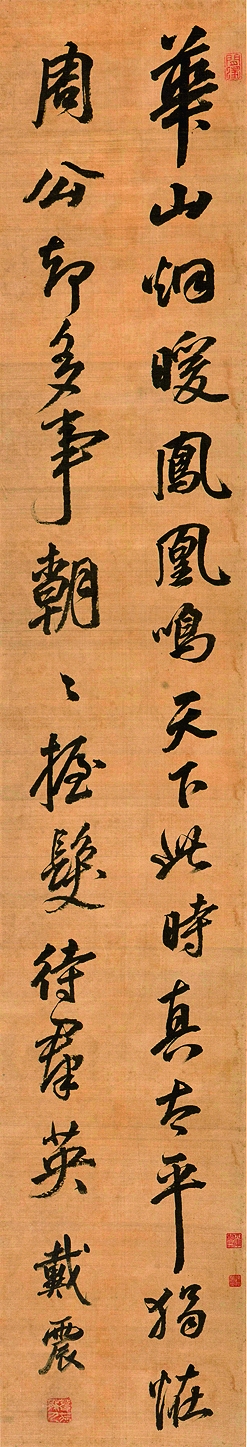 華山烟暖鳳凰鳴天下此時真太平猶恠
周公却多事朝〻握髮待羣英 戴震